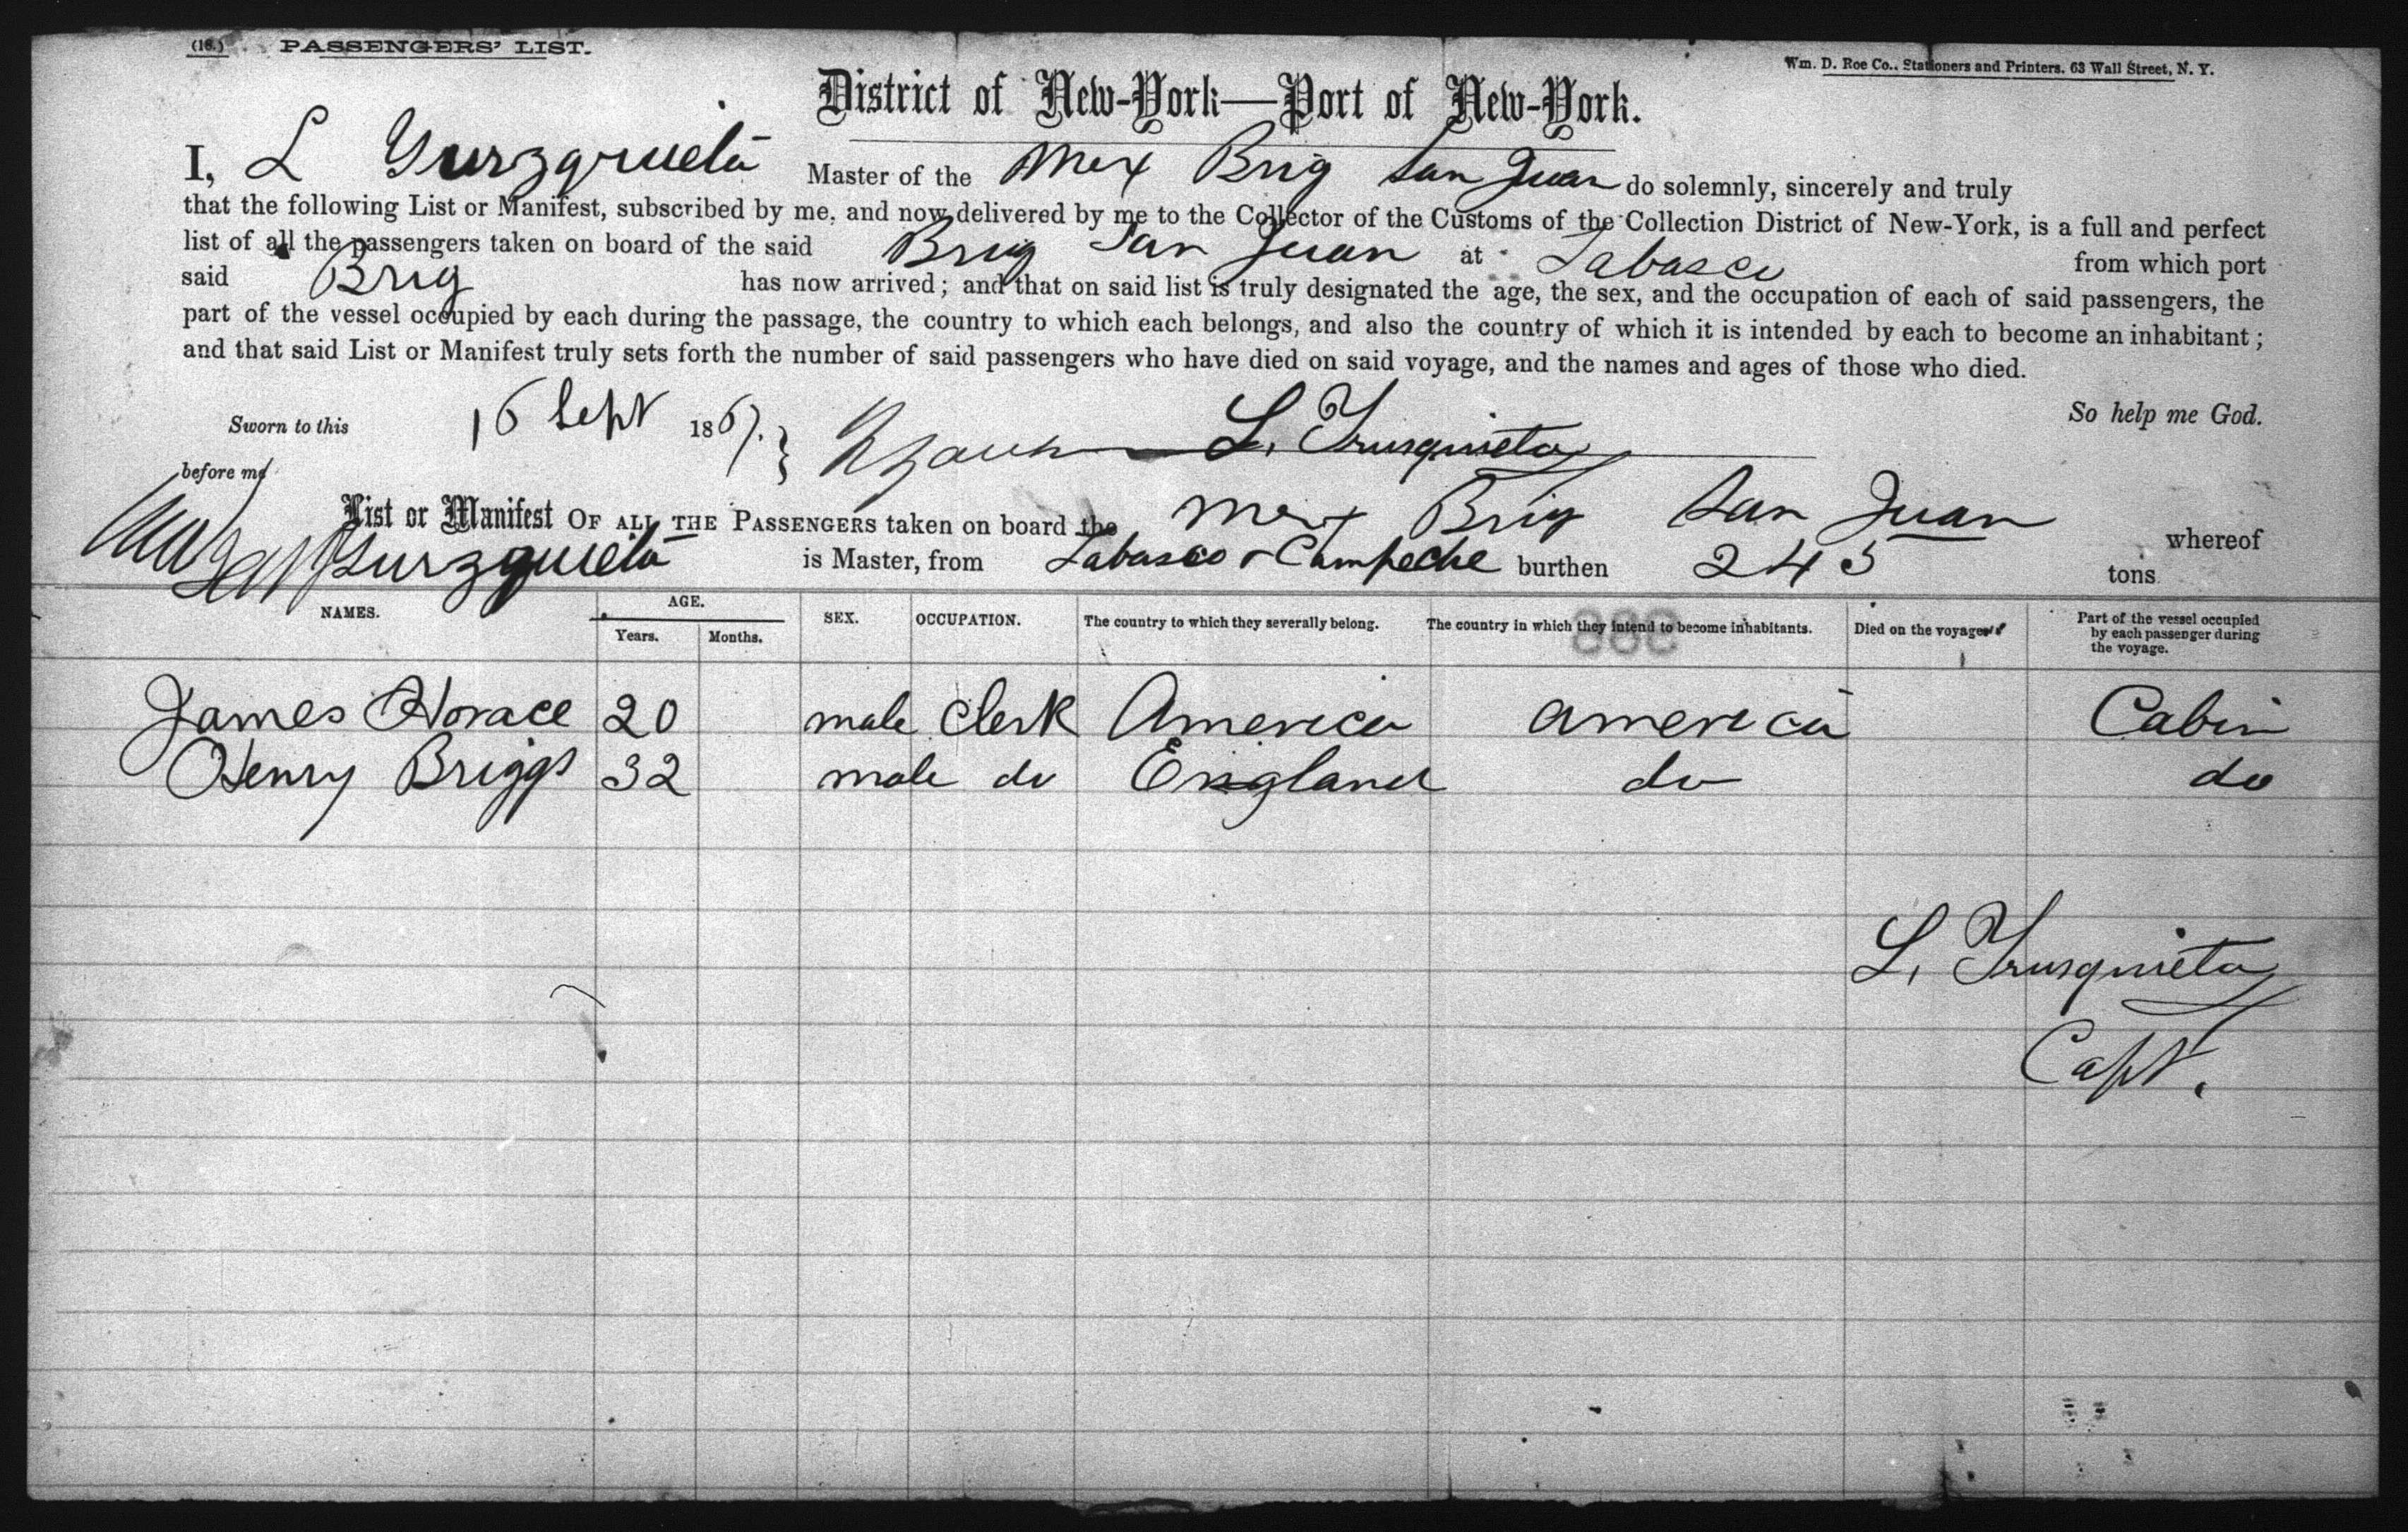 (18.) PASSENGERS' LIST.
Wm. D. Roe Co., Stationers and Printers, 63 Wall Street, N. Y.
District of New-York—Port of New-York.
I, L Yurzqruieta Master of the Mex Brig San Juan do solemnly, sincerely and truly
that the following List or Manifest, subscribed by me, and now delivered by me to the Collector of the Customs of the Collection District of New-York, is a full and perfect
list of all the passengers taken on board of the said Brig San Juan at Tabasco from which port
said Brig has now arrived; and that on said list is truly designated the age, the sex, and the occupation of each of said passengers, the
part of the vessel occupied by each during the passage, the country to which each belongs, and also the country of which it is intended by each to become an inhabitant;
and that said List or Manifest truly sets forth the number of said passengers who have died on said voyage, and the names and ages of those who died.
So help me God.
Sworn to this 16 Sept 1867. } L. Yrusquieta
before me
List or Manifest OF ALL THE PASSENGERS taken on board the Mex Brig San Juan whereof
Yurzquieta is Master, from Tabasco & Campeche burthen 245 tons
NAMES. AGE. Years. Months. SEX. OCCUPATION. The country to which they severally belong. The country in which they intend to become inhabitants. Died on the voyage. Part of the vessel occupied by each passenger during the voyage.
James Horace 20 male Clerk America america Cabin
Henry Briggs 32 male do England do do
L. Yrusquieta
Capt.